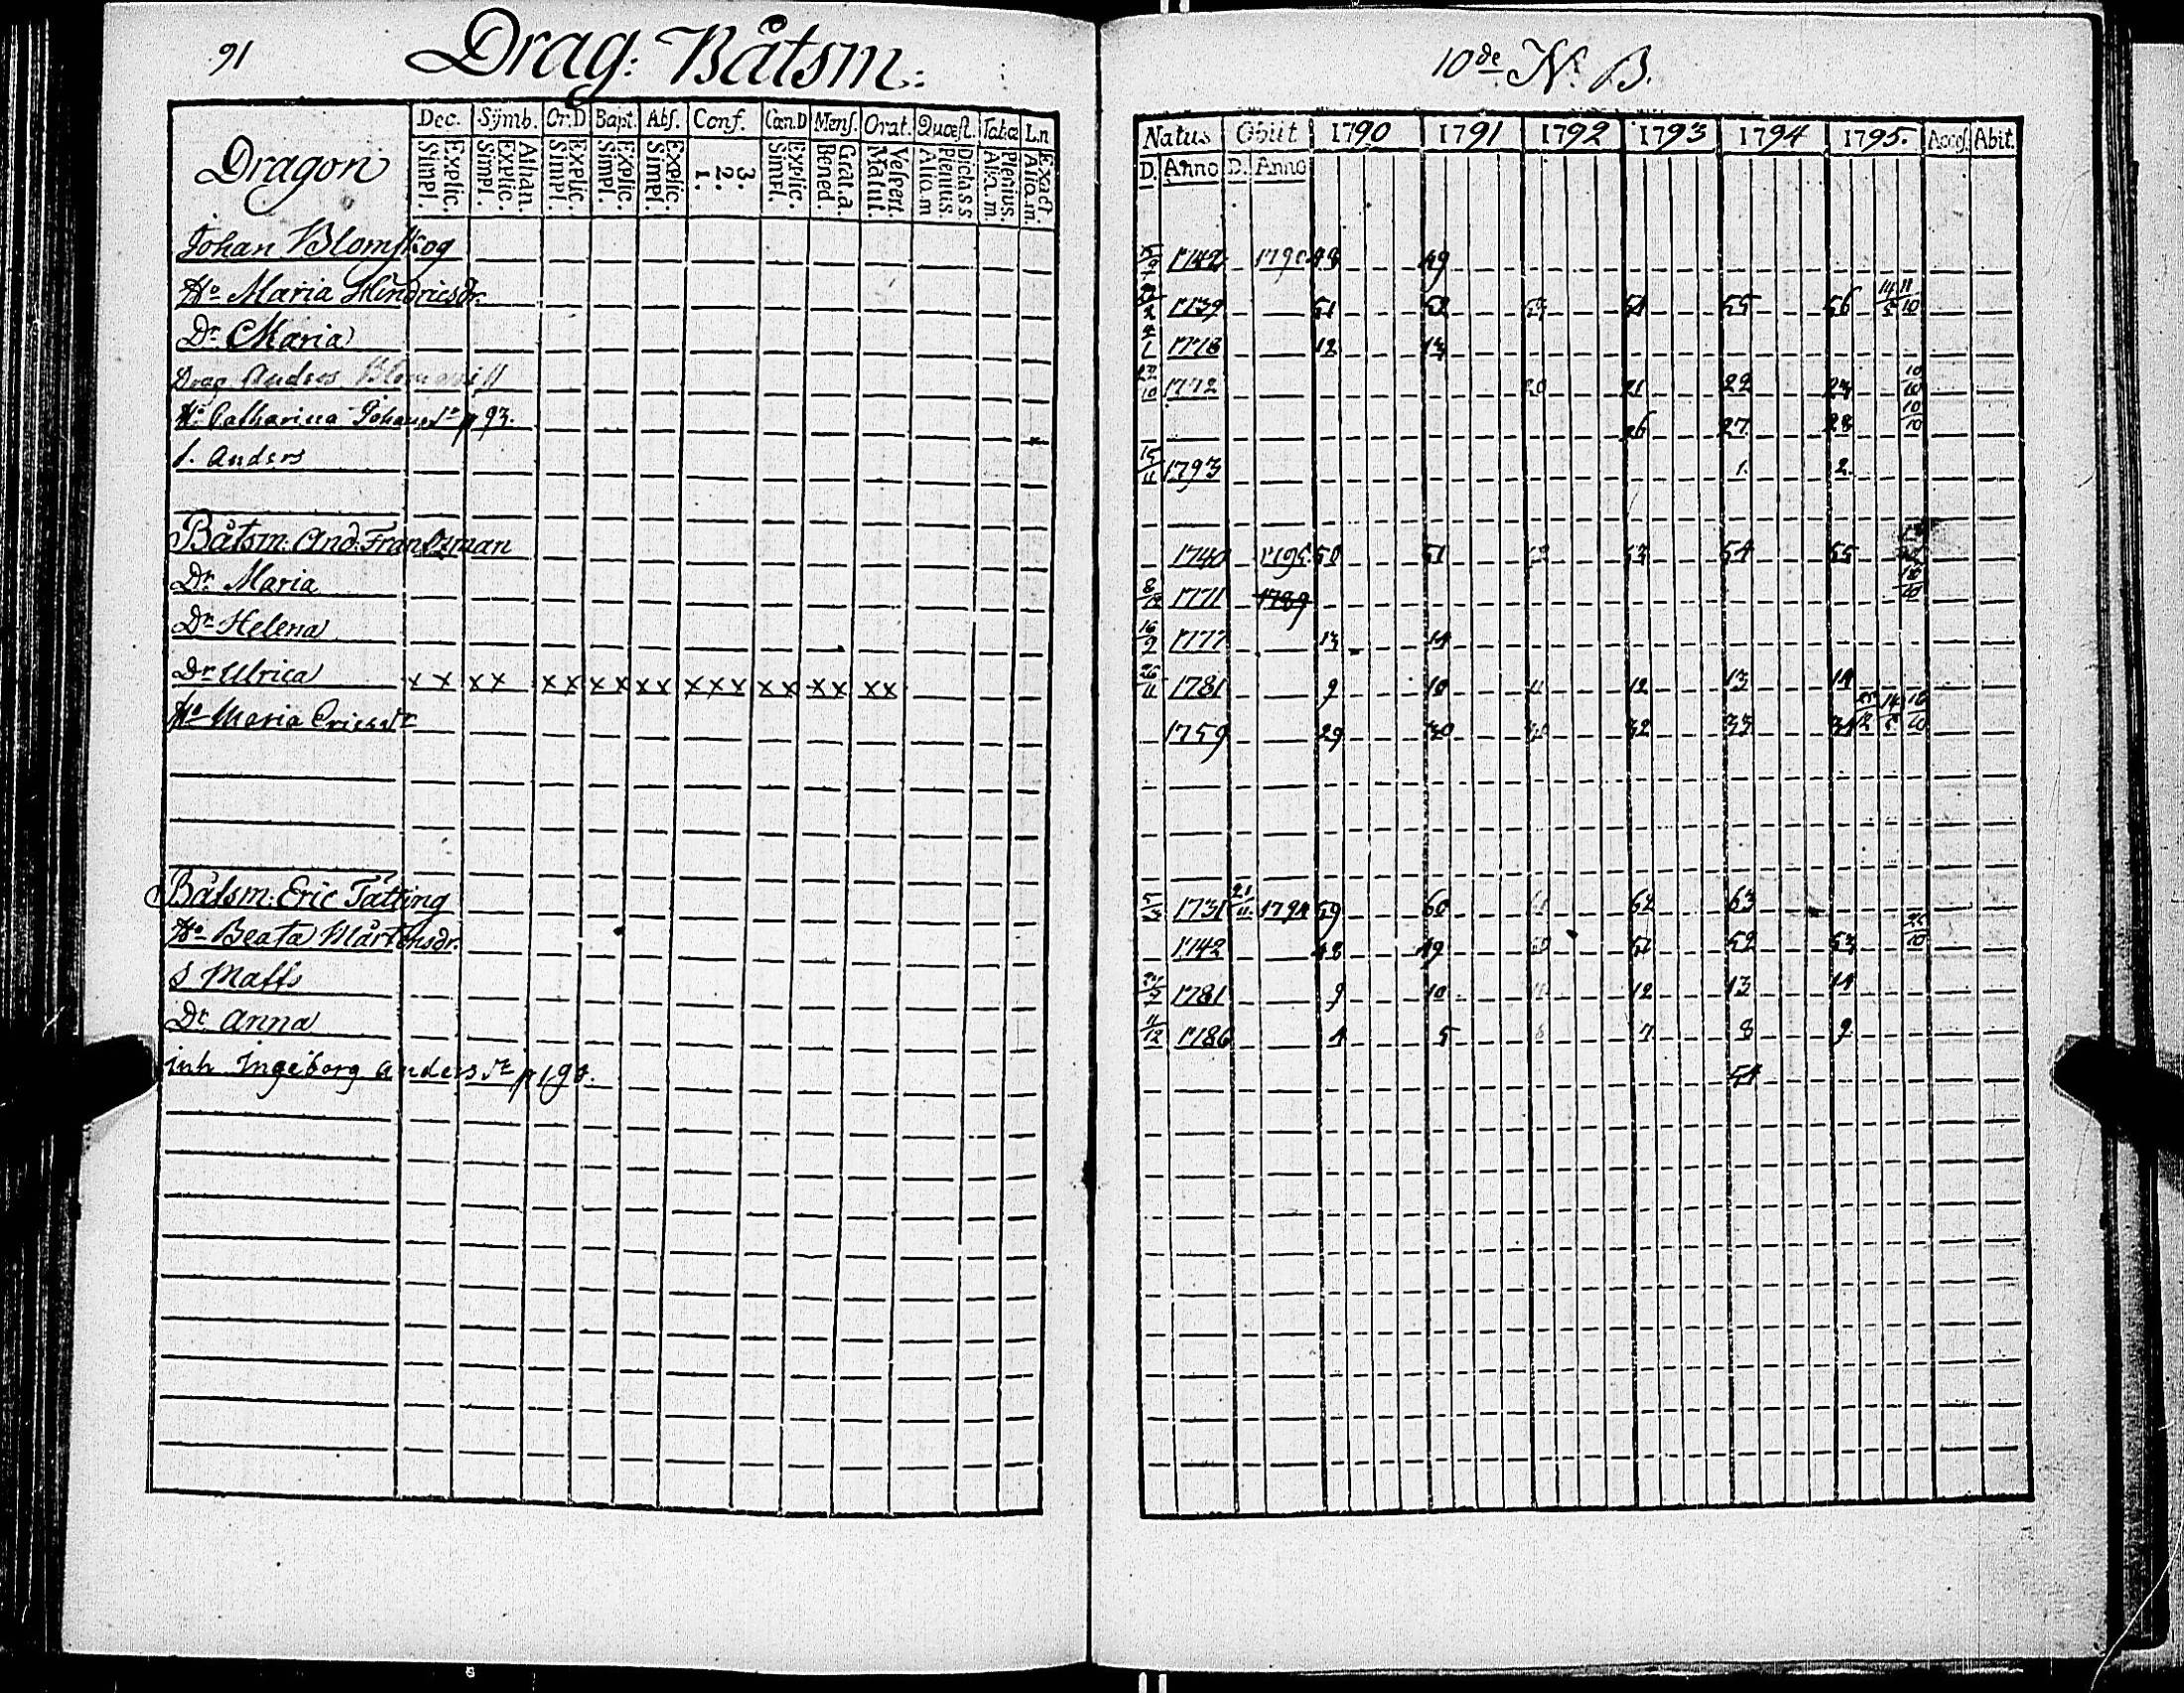 91
Drag: Båtsm:
Dragon Dec. Symb. Or.D Bapt. Abs. Conf. Cœn.D Mens. Orat. Quœst. Tabœ L.n
Simpl. Explic. Simpl. Explic. Athan. Simpl. Explic. Simpl. Explic. Simpl. Explic. 1. 2. 3. Simpl. Explic. Bened. Grat.a. Matut. Vespert. Alio.m Plenius. D:cta.s.s Aliq.m. Plenius. Alio.m. Exact
Johan Blomskog
Ho Maria Hindricsdr.
Dr Maria
Drag Anders
Ho Catharina Johansdr p 93.
s. Anders
Båtsm. And. Frantzman
Dr. Maria
Dr Helena
Dr Ulrica x x x x x x x x x x x x x x x x x x x
Ho Maria Ericsdr
Båtsm. Eric Tätting
Ho Beata Mårtensdr.
S Matts
Dr Anna
inh Ingeborg Andersdr p 198.
10de N. B.
Natus Obiit 1790 1791 1792 1793 1794 1795. Acces. Abit.
D. Anno D. Anno
1742 1790 48 49
1739 51 52 53 54 55 56 14/5 11/10
4/1 1778 12 13
1772 20 21 22 23 10/10
26 27 28 10/10
15/11 1793 1. 2.
1740 1795. 50 51 52 53 54 55
1771 1789
16/9 1777 13 14
26/11 1781 9 10 11 12 13 14
1759 29 30 32 33 34 14/5
5/3 1731 21/11 1794 59 60 62 63
1742 48 49 50 51 52 53
1781 9 10 12 13 14
11/12 1786 4 5 7 8 9
54